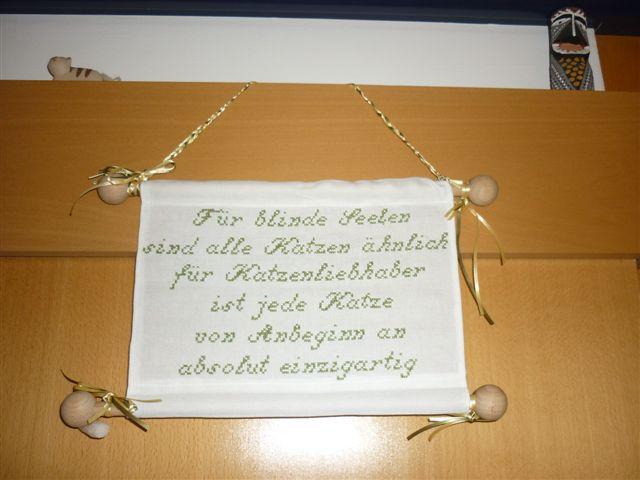 Für blinde Seelen
sind alle Katzen ähnlich
für Katzenliebhaber
ist jede Katze
von Anbeginn an
absolut einzigartig